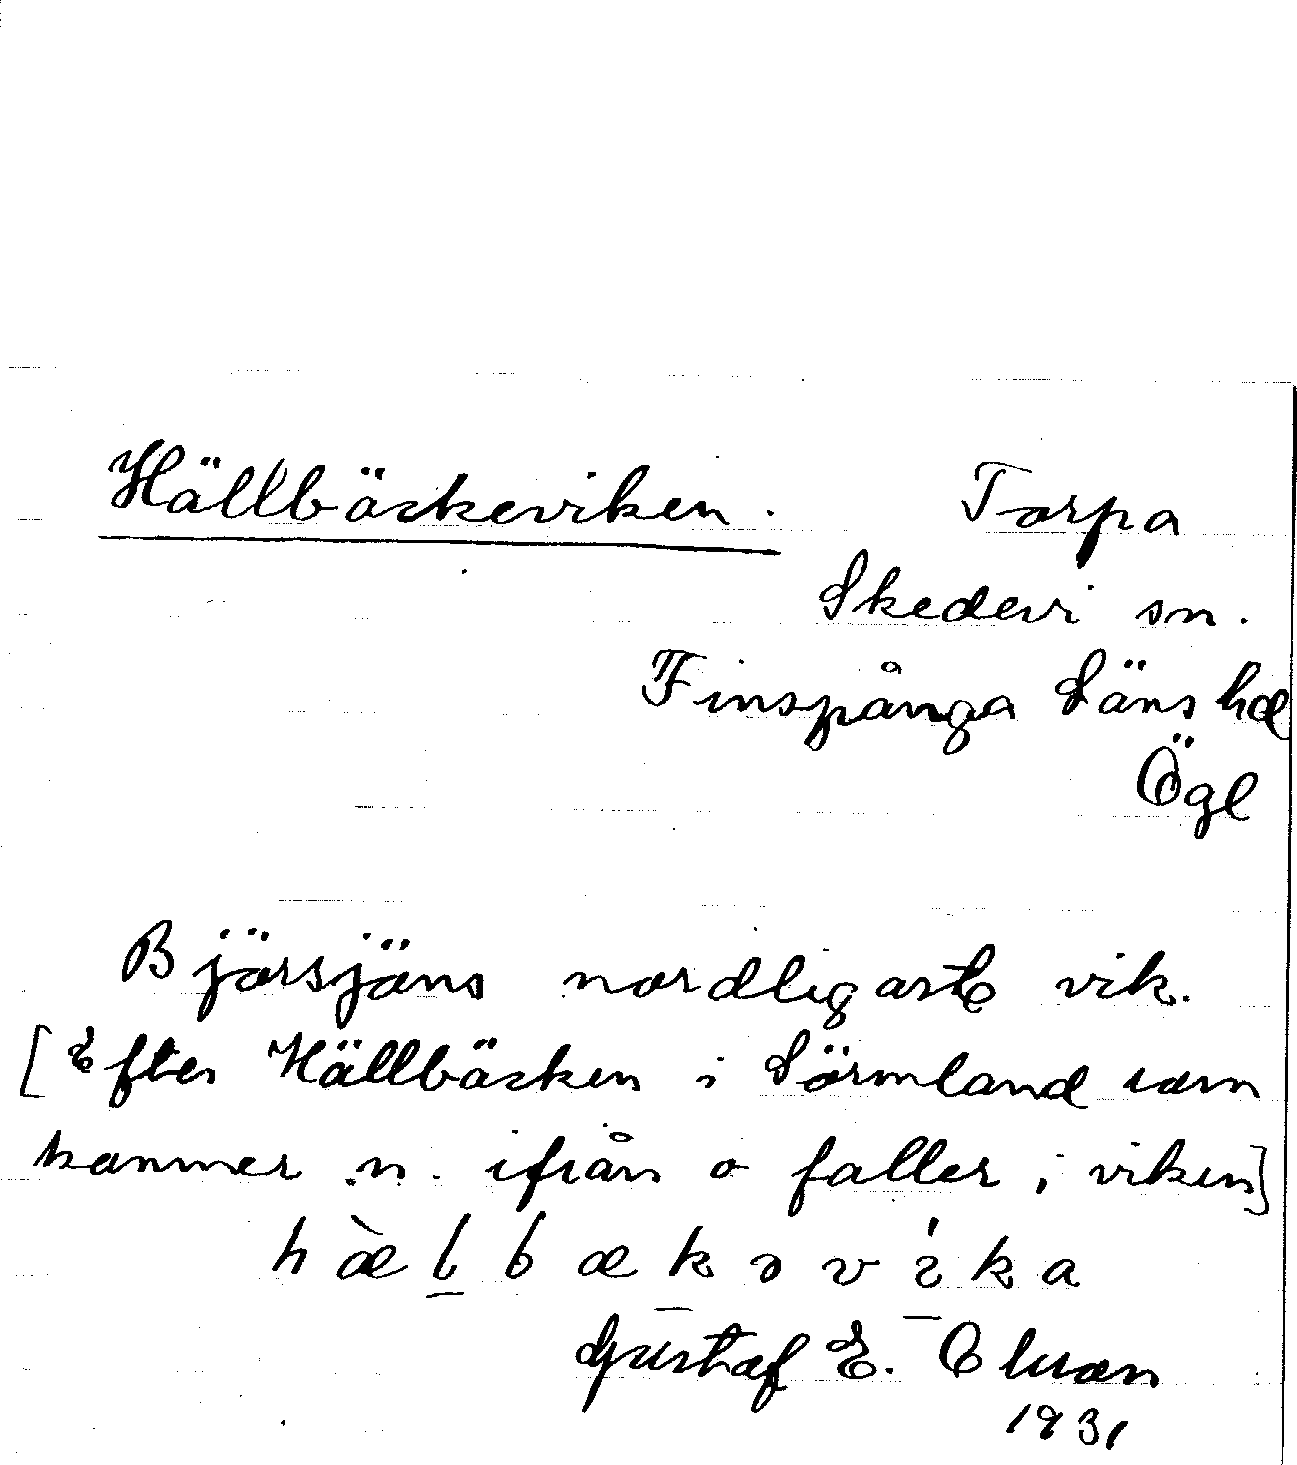 Hällbäckeviken. Torpa
Skedevi sn.
Finspånga Läns hd
Ögl
Björsjöns nordligaste vik.
[Efter Hällbäcken i Sörmland som
kommer n. ifrån o faller i viken]
hæ̀lbækəvika
Gustaf E. Olsson
1931